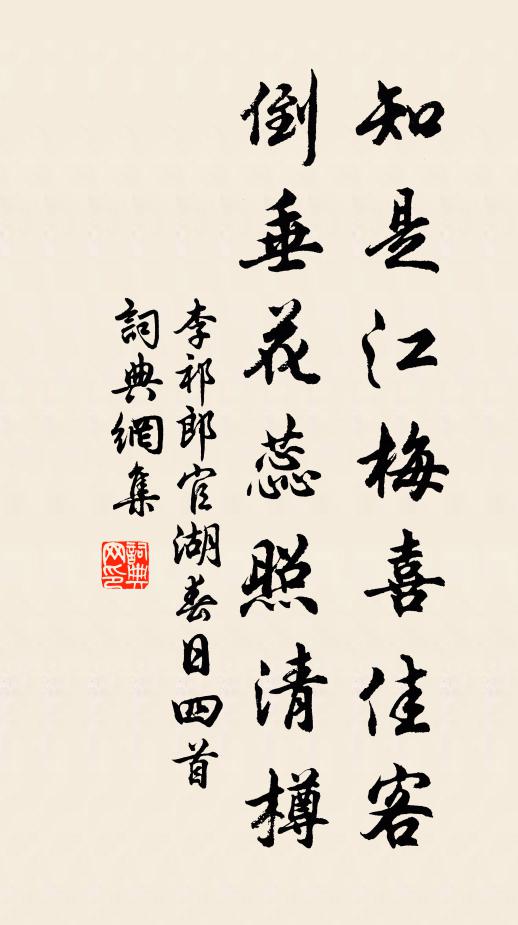 知是江梅喜佳客
倒垂花蕊照清樽
李祁郎官湖春日四首
詞典網集
詞典网印